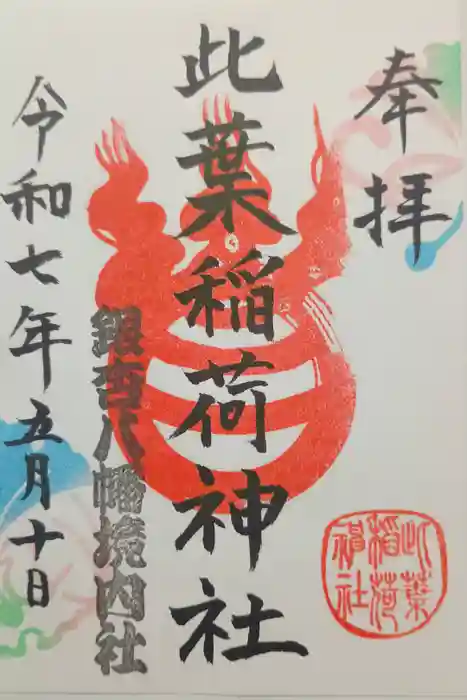 奉拝
此葉稲荷神社
銀杏八幡境内社
令和七年五月十日
此葉
稲荷
神社